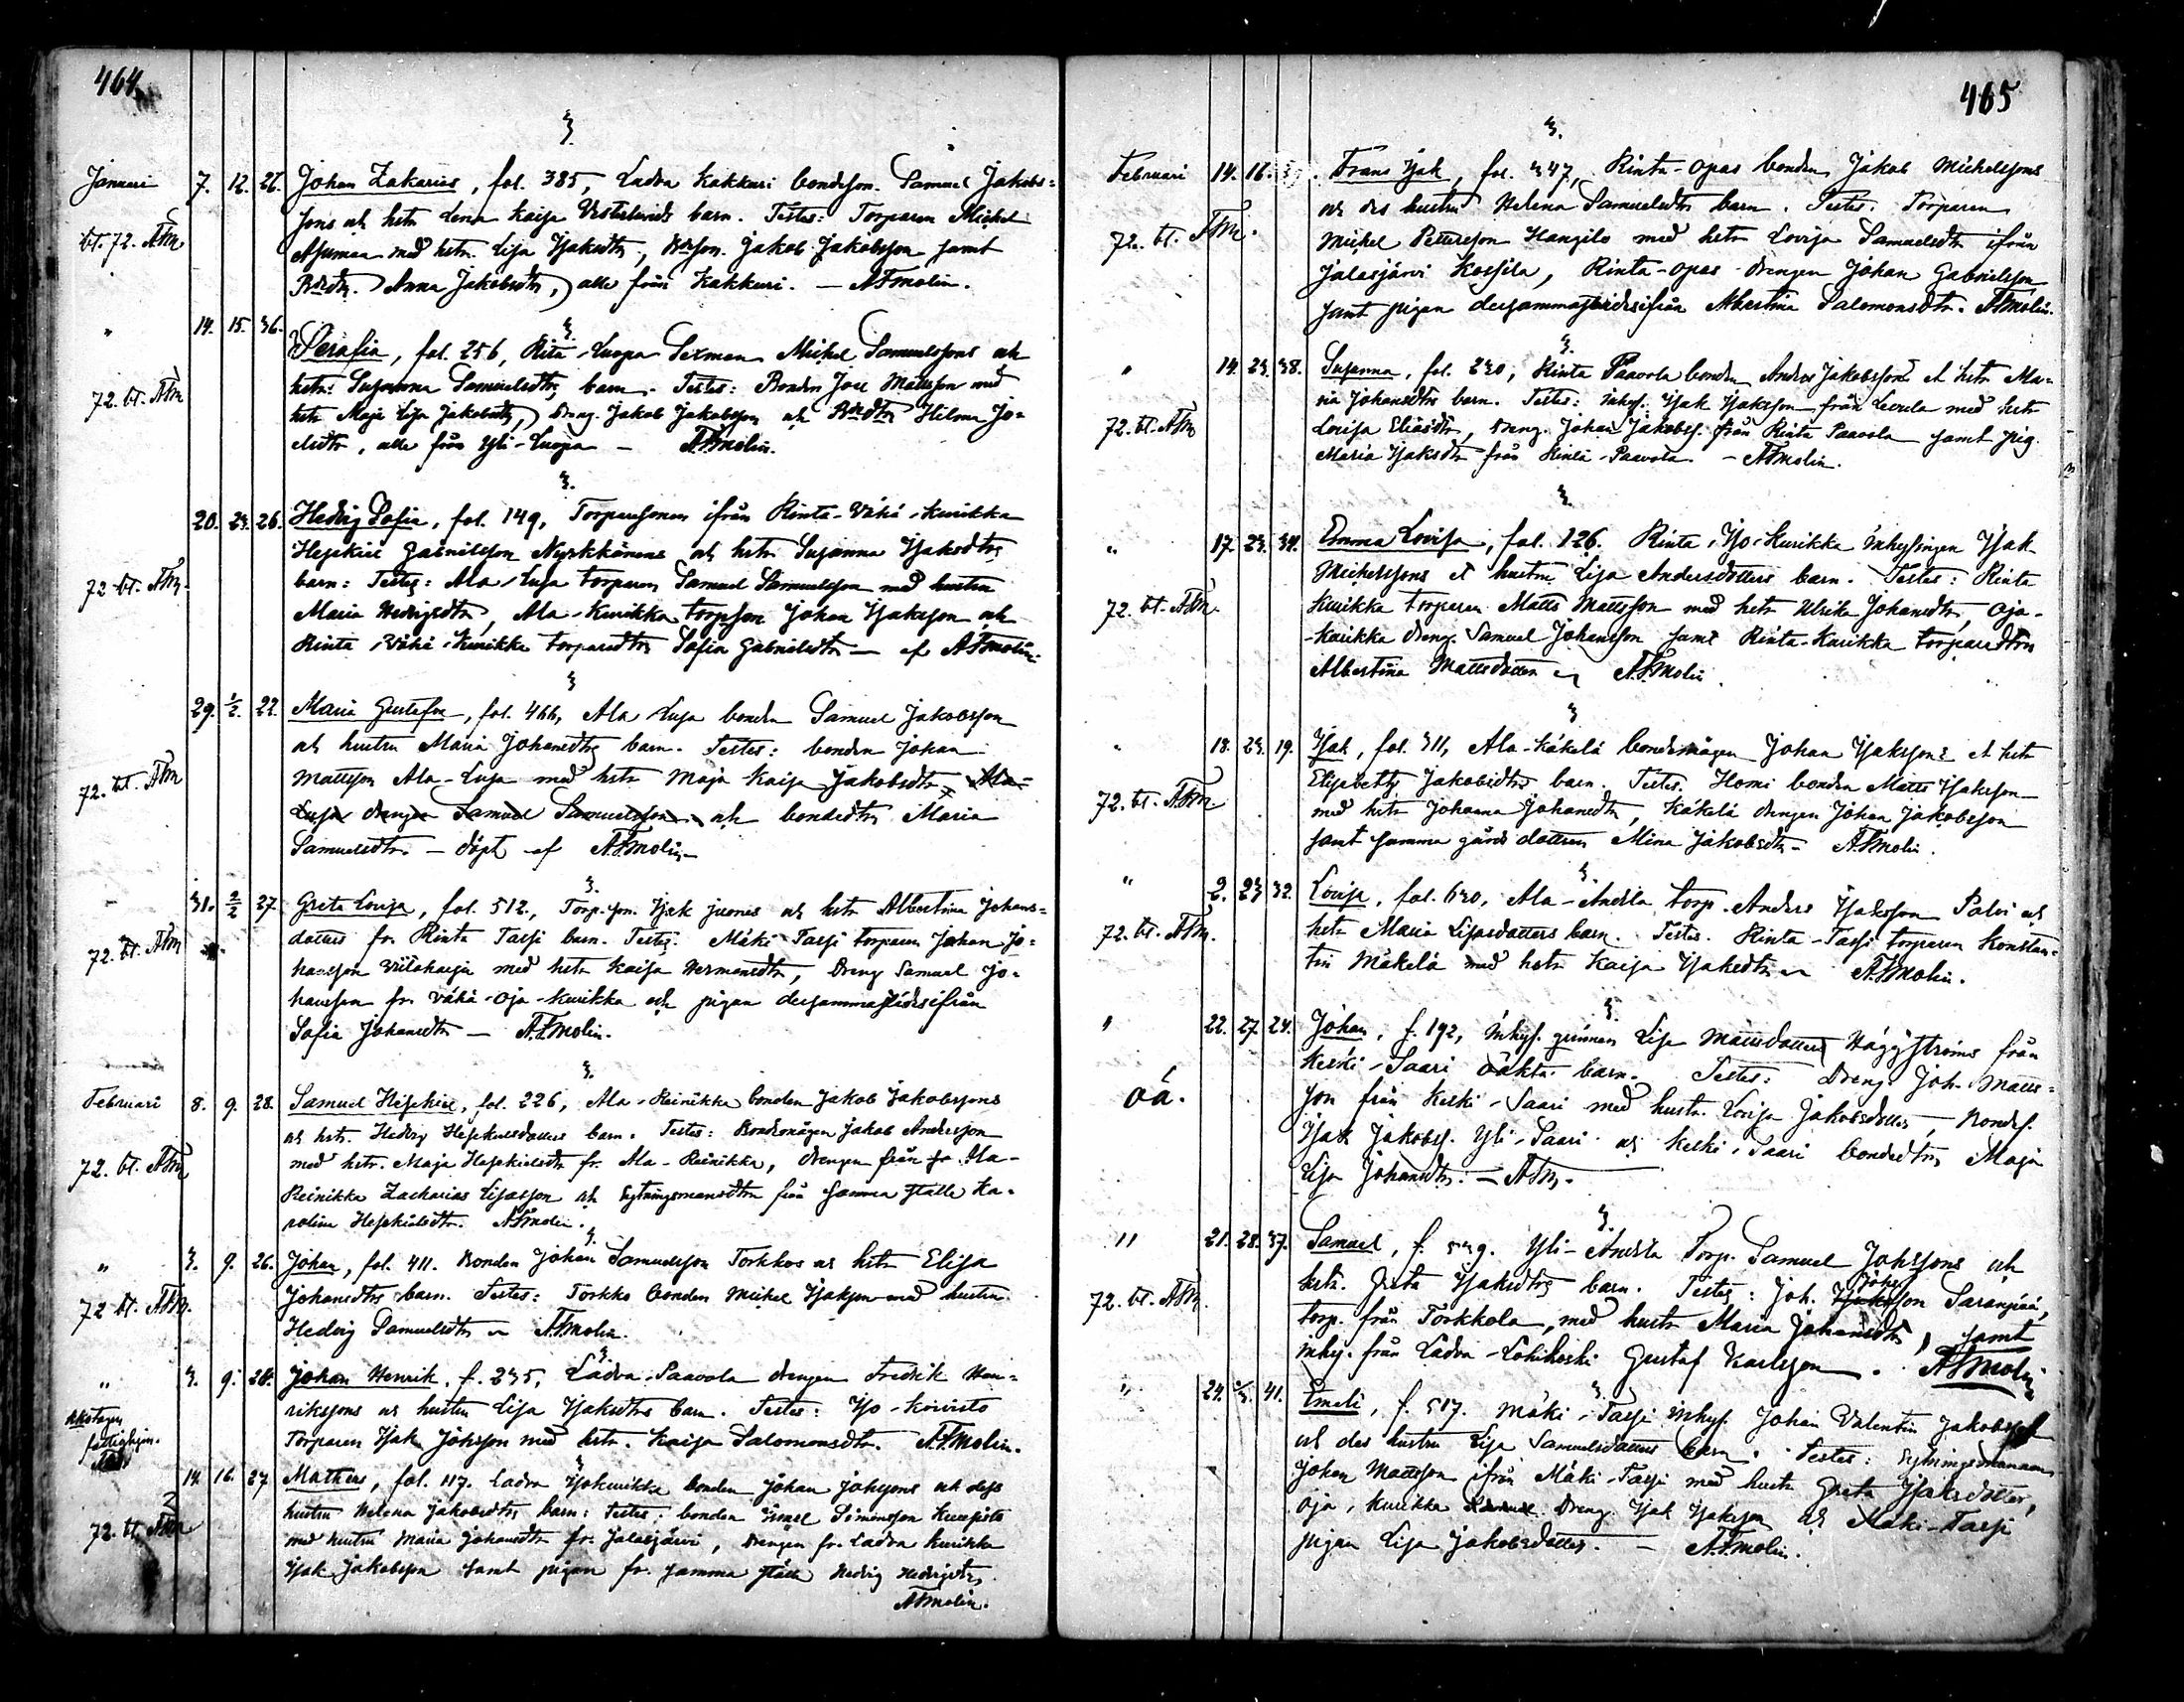 464.
3.
Januari 7. 12. 26. Johan Zakarias, fol. 385, Ladva Kakkuri bondeson. Samuel Jakobs=
sons och hstr Lena Kaisa barn. Testes: Torparen Michel
bt. 72. AFM
Asumaa med hstr. Lisa Isaksdtr, Jakob Jakobsson samt
Anna Jakobsdtr, alle från Kakkuri. — AFMolin.
3.
" 14. 15. 36. Serafia, fol. 256, Rita-Luopa Sexman Michel Samuelssons och
hstr: Susanna Samuelsdtrs barn. Testes: Bonden Joel Mattsson med
72. bt. AFM
hstr Maja Lisa Jakobsdtr, Dreng. Jakob Jakobsson och Hilma Jo=
elsdtr, alle från Yli-Luopa — AFMolin.
3.
20. 23. 26. Hedvig Sofia, fol. 149, Torparesonen ifrån Rinta-Vähä-Kurikka
Heskiel Gabrielsson och hstr Susanna Isaksdtrs
72 bt. AFM.
barn: Testes: Ala-Luja torparen Samuel Samuelsson med hustru
Maria, Ala-Kurikka torpson Johan Isaksson och
Rinta-Vähä-Kurikka torparedtr Sofia Gabrielsdtr — af AFMolin.
3
29. 1/2. 22. Maria Gustafva, fol. 466, Ala Luja bonden Samuel Jakobsson
och hustru Maria Johansdtrs barn. Testes: bonden Johan
Mattsson Ala-Luja med hstr Maja Kaisa Jakobsdtr, Ala-
72. bt. AFM
Luja drengen Samuel Samuelsson och bondedtr Maria
Samuelsdtr. — döpt af AFMolin—
3.
31. 2/2 27. Greta Lovisa, fol. 512., Torp. son. Isak och hstr Albertina Johans=
dotters fr. Rinta Tassi barn. Testes: Mäki Tassi torparen Johan Jo=
72. bt. AFM
hansson med hstr Kaisa Hermansdtr, Dreng Samuel Jo=
hansson fr. Vähä-Oja-Kurikka och pigan dersammastädesifrån
Sofia Johansdtr — AFMolin.
3.
Februari 8. 9. 28. Samuel Heskiel, fol. 226, Ala-Reinikka bonden Jakob Jakobssons
och hstr. Hedvig Heskielsdotters barn. Testes: Bondemågen Jakob Andersson
72. bt. AFM
med hstr. Maja Heskielsdtr fr. Ala-Reinikka, drengen från Ala-
Reinikka Zacharias och Sytningsmansdtr från samma ställe Ka=
rolina Heskielsdtr. AFMolin.
3.
" 3. 9. 26. Johan, fol. 411. Bonden Johan Samuelsson Torkkos och hstr Elisa
72 bt. AFM.
Johansdtrs barn. Testes: Torkko bonden Michel Isaksson med hustru
Hedvig Samuelsdtr — AFMolin.
3.
" 3. 9. 28. Johan Henrik, f. 235, Ladva-Paavola drengen Fredrik Hen=
rikssons och hustru Lisa Isaksdtrs barn. Testes: Yo-Koivisto
Torparen Isak Johsson med hstr. Kaisa Salomonsdtr. AFMolin.
3
14. 16. 27. Mathias, fol. 117. Ladva Isokurikka bonden Johan Johssons och dess
hustru Helena Jakobsdtrs barn: Testes: bonden Israel Simonsson
72. bt. AFM
med hustru Maria Johansdtr fr. Jalasjärvi, drengen fr. Ladva Kurikka
Isak Jakobsson samt pigan fr. samma ställe Hedvig
AFMolin.
465
3.
Februari 14. 16. Frans Isak, fol. 347, Rinta-Opas bonden Jakob Michelssons
och des hustru Helena Samuelsdtrs barn. Testes: Torparen
72. bt. AFM.
Michel Pettersson Hangilo med hstr Lovisa Samuelsdtr ifrån
Jalasjärvi Koskila, Rinta-Opas drengen Johan Gabrielsson
samt pigan dersammastädesifrån Albertina Salomonsdtr. AFMolin.
3.
" 14. 23. 38. Susanna, fol. 230, Rinta Paavola bonden Anders Jakobssons et hstr Ma=
ria Johansdtrs barn. Testes: inhys. Isak Isaksson från Levula med hstr
72. bt. AFM
Lovisa Eliasdtr, Dreng. Johan Jakobss. från Rinta Paavola samt pig.
Maria Isaksdtr från Rinta-Paavola — AFMolin.
3.
" 17. 23. 34. Emma Lovisa, fol. 126. Rinta-Yo-Kurikka Inhysingen Isak
Michelssons et hustru Lisa Andersdotters barn. Testes: Rinta
72. bt. AFM.
Kurikka torparen Matts Mattsson med hstr Ulrika Johansdtr, Oja-
Kurikka dreng. Samuel Johansson samt Rinta-Kurikka torparedtrn
Albertina Mattsdotter AFMolin.
3
" 18. 23. 19. Isak, fol. 311, Ala-Käkelä bondemågen Johan Isakssons et hstr
Elisabeth Jakobsdtrs barn. Testes. Homi bonden Matts Isaksson
72. bt. AFM
med hstr Johanna Johansdtr, Käkelä drengen Johan Jakobsson
samt samma gårds dottren Mina Jakobsdtr — AFMolin.
3.
" 2. 23 32. Lovisa, fol. 630, Ala-Anttila torp. Anders Isaksson Salvi och
72. bt. AFM.
hstr Maria barn. Testes. Rinta-Tassi torparen Konstan=
tin Mäkelä med hstr Kaisa Isaksdtr AFMolin.
3.
" 22. 27. 24. Johan, f. 192, Inhys. qvinnan Lisa Mattsdotters Häggströms från
Keski-Saari oäkta barn. Testes: Dreng Joh. Matts=
oä.
son från Keski-Saari med hustr. Lovisa Jakobsdotter, Bondes.
Isak Jakobss. Yli-Saari och Keski-Saari bondedtrn Maja
Lisa Johansdtr. — AFM.
3.
" 21. 28. 37. Samuel, f. 539. Yli-Anttila Torp. Samuel Johssons och
hstr. Greta Isaksdtrs barn. Testes: Joh. Isaksson Johss Saranpää,
72. bt. AFM.
torp. från Torkkola, med hustr Maria Johansdtr, samt
inhy. från Ladva-Lohikoski Gustaf Karlsson. AFMolin
3.
" 24. 41. Emali, f. 517. Mäki-Tassi Inhys. Johan Valentin Jakobsson
och des hustru Lisa Samuelsdotters barn. Testes: Sytningsmannen
Johan Mattsson ifrån Mäki-Tassi med hustr Greta Isaksdotter,
Oja-Kurikka Dreng. Isak Isaksson och Mäki-Tassi
pigan Lisa Jakobsdotter. — AFMolin.